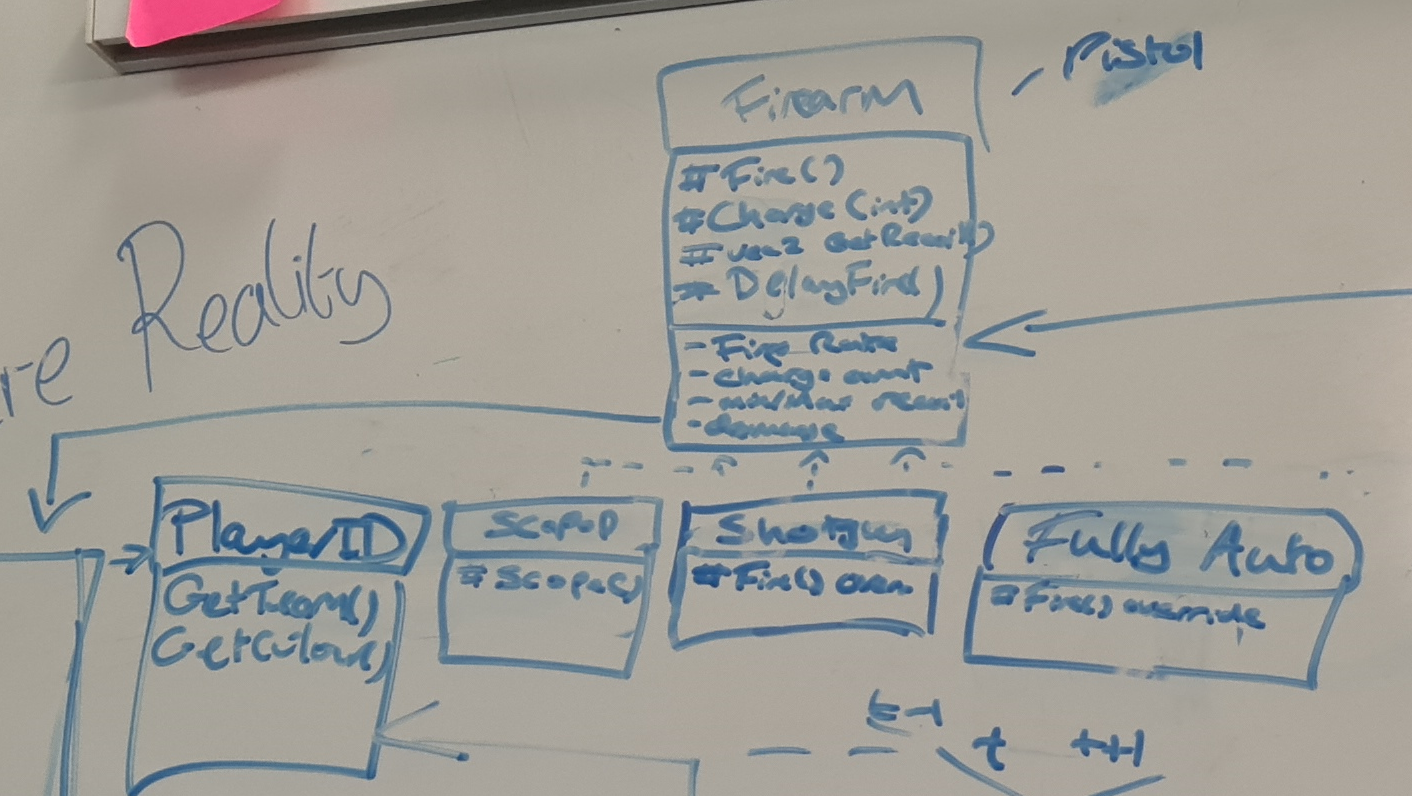 Firearm
Pistol
#Fire()
#Charge(int)
#vec2 GetRecoil()
# DelayFire()
- Fire Rate
- charge amt
- min/Max recoil
- damage
re Reality
PlayerID
GetTeam()
GetColour()
Scoped
#Scope()
Shotgun
#Fire() over
Fully Auto
#Fire() override
t-1
t
t+1